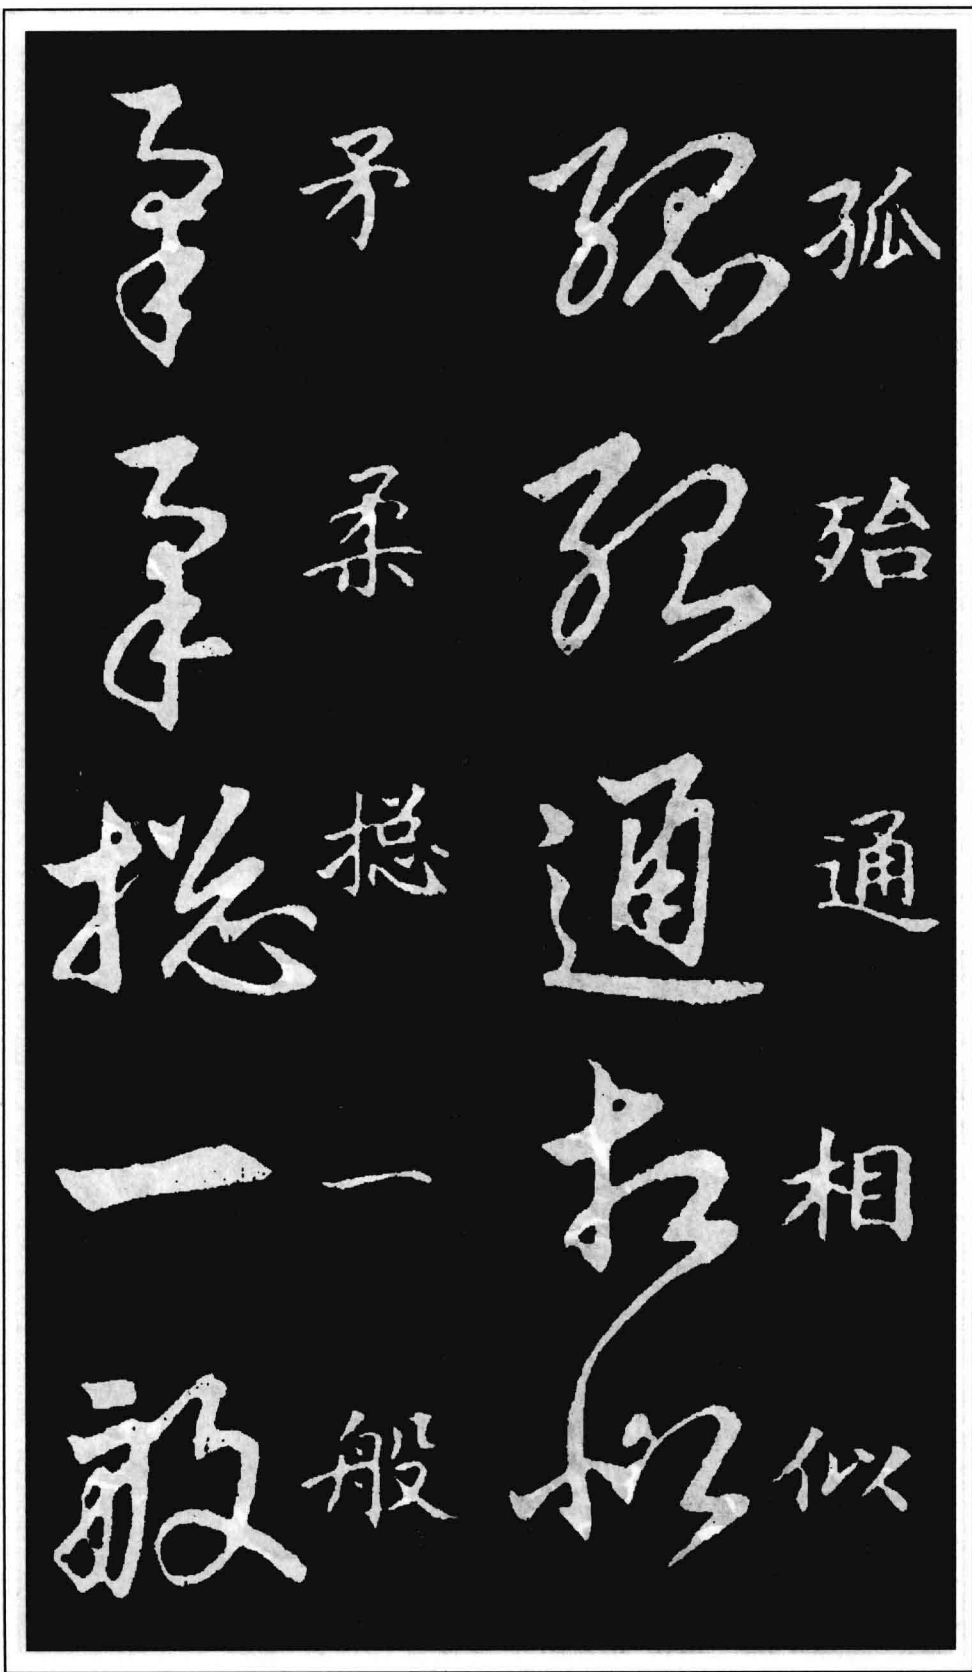 孤殆通相似
孤殆通相似
矛柔揔一般
矛柔揔一般